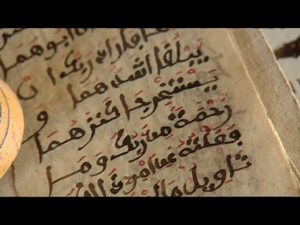 ابوهما
فاراد ربك ان
يبلغا اشدهما و
يستخرجا كنزهما
رحمة من ربك وما
فعلته عن امري
تاويل ما